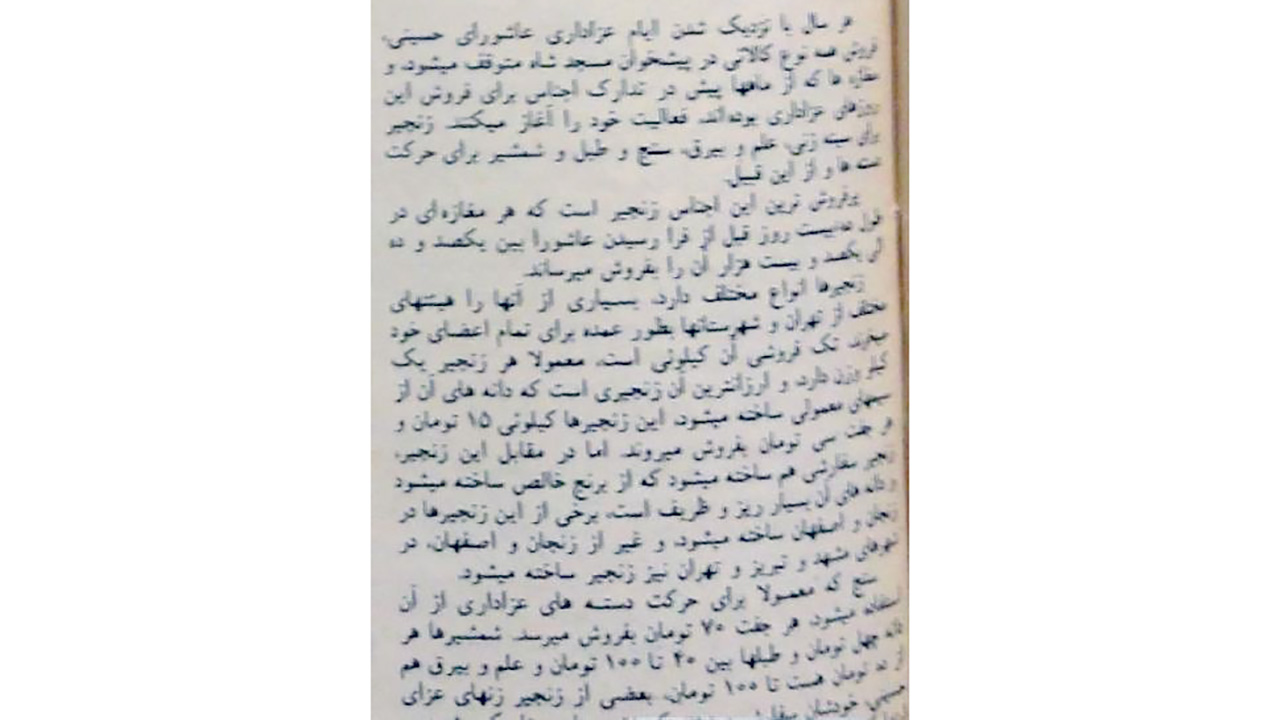 هر سال با نزدیک شدن ایام عزاداری عاشورای حسینی،
فروش همه نوع کالائی در پیشخوان مسجد شاه متوقف میشود، و
مغازه ها که از ماهها پیش در تدارک اجناس برای فروش این
روزهای عزاداری بوده‌اند، فعالیت خود را آغاز میکنند. زنجیر
برای سینه زنی، علم و بیرق، سنج و طبل و شمشیر برای حرکت
دسته ها و از این قبیل.
پرفروش ترین این اجناس زنجیر است که هر مغازه‌ای در
طول ده‌بیست روز قبل از فرا رسیدن عاشورا بین یکصد و ده
الی یکصد و بیست هزار آن را بفروش میرساند.
زنجیرها انواع مختلف دارد، بسیاری از آنها را هیئتهای
مختلف از تهران و شهرستانها بطور عمده برای تمام اعضای خود
میخرند تک فروشی آن کیلوئی است، معمولا هر زنجیر یک
کیلو وزن دارد، و ارزانترین آن زنجیری است که دانه های آن از
سیمهای معمولی ساخته میشود، این زنجیرها کیلوئی ۱۵ تومان و
هر جفت سی تومان بفروش میروند. اما در مقابل این زنجیر،
زنجیر سفارشی هم ساخته میشود که از برنج خالص ساخته میشود
و دانه های آن بسیار ریز و ظریف است، برخی از این زنجیرها در
زنجان و اصفهان ساخته میشود، و غیر از زنجان و اصفهان، در
شهرهای مشهد و تبریز و تهران نیز زنجیر ساخته میشود.
سنج که معمولا برای حرکت دسته های عزاداری از آن
استفاده میشود، هر جفت ۷۰ تومان بفروش میرسد. شمشیرها هر
دانه چهل تومان و طبلها بین ۴۰ تا ۱۰۰ تومان و علم و بیرق هم
از ده تومان هست تا ۱۰۰ تومان، بعضی از زنجیر زنهای عزای
حسینی، خودشان